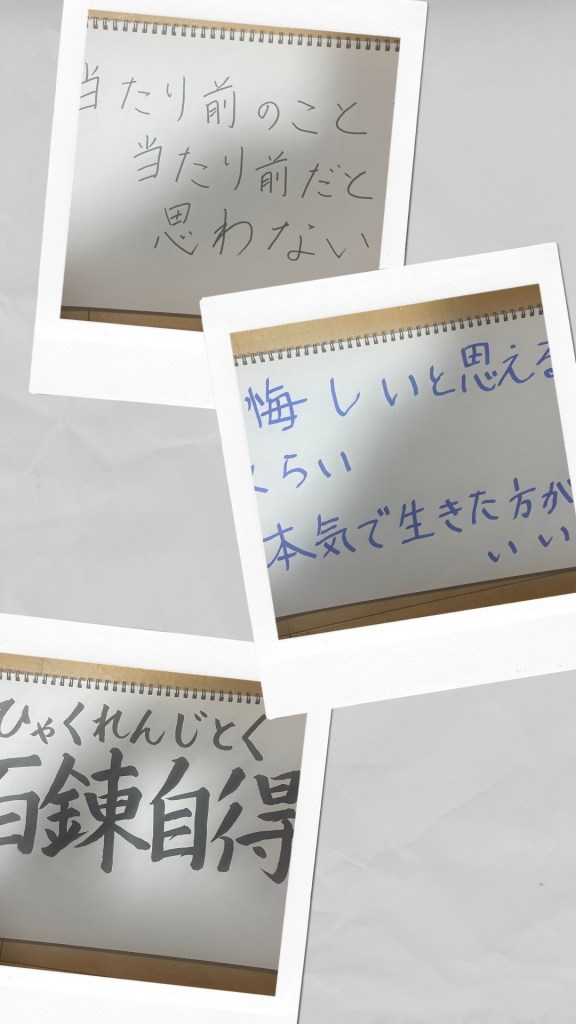 当たり前のこと
当たり前だと
思わない
悔しいと思える
くらい
本気で生きた方が
いい
ひゃくれんじとく
百錬自得